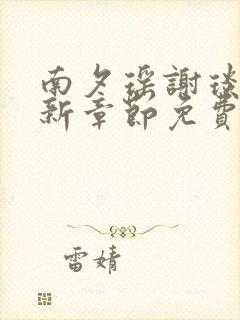 南夕瑶謝琰
新章節免費
雷婧